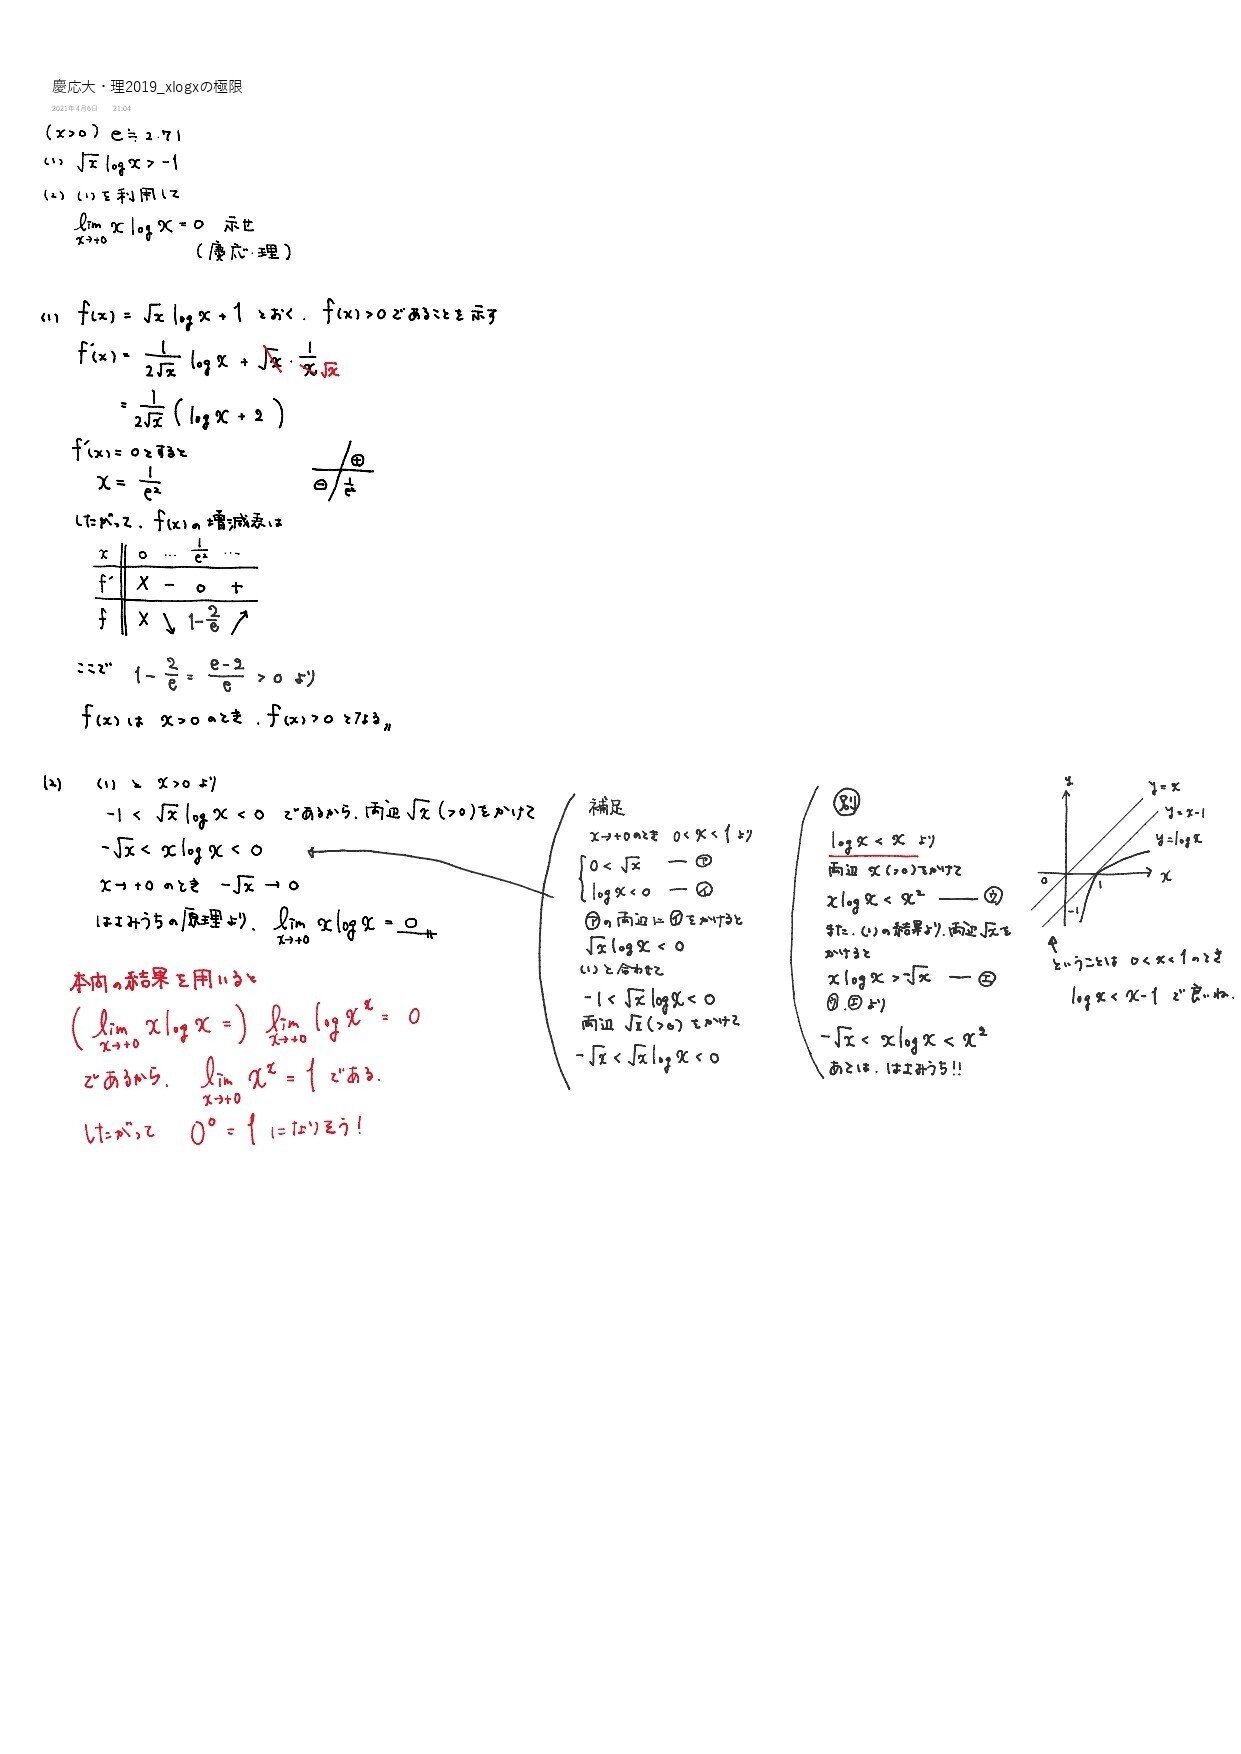 慶応大・理2019_xlogxの極限
2021年4月6日 21:04
(x>0) e≒2.71
(1) √x log x > -1
(2) (1)を利用して
lim_{x→+0} x log x = 0 示せ
(慶応・理)
(1) f(x) = √x log x + 1 とおく. f(x)>0であることを示す
f'(x) = 1/(2√x) log x + √x・1/x √x
= 1/(2√x) (log x + 2)
f'(x) = 0とすると
x = 1/e²
⊕
⊖ 1/e²
したがって、f(x)の増減表は
x 0 … 1/e² …
f' X - 0 +
f X ↘ 1-2/e ↗
ここで 1 - 2/e = (e-2)/e > 0 より
f(x)は x>0のとき、f(x)>0となる〃
(2) (1)と x>0より
-1 < √x log x < 0 であるから、両辺√x (>0)をかけて
-√x < x log x < 0
x→+0のとき -√x → 0
はさみうちの原理より、lim_{x→+0} x log x = 0〃
本問の結果を用いると
(lim_{x→+0} x log x =) lim_{x→+0} log x^x = 0
であるから、lim_{x→+0} x^x = 1 である.
したがって 0⁰ = 1 になりそう!
補足
x→+0のとき 0<x<1より
0 < √x ― ㋐
log x < 0 ― ㋑
㋐の両辺に㋑をかけると
√x log x < 0
(1)と合わせて
-1 < √x log x < 0
両辺 √x (>0)をかけて
-√x < √x log x < 0
別
log x < x より
両辺 x (>0)をかけて
x log x < x² ― ㋒
また、(1)の結果より、両辺√xを
かけると
x log x > -√x ― ㋓
㋒,㋓より
-√x < x log x < x²
あとは、はさみうち!!
y
y=x
y=x-1
y=log x
0
1
x
-1
ということは 0<x<1のとき
log x < x-1 で良いね.